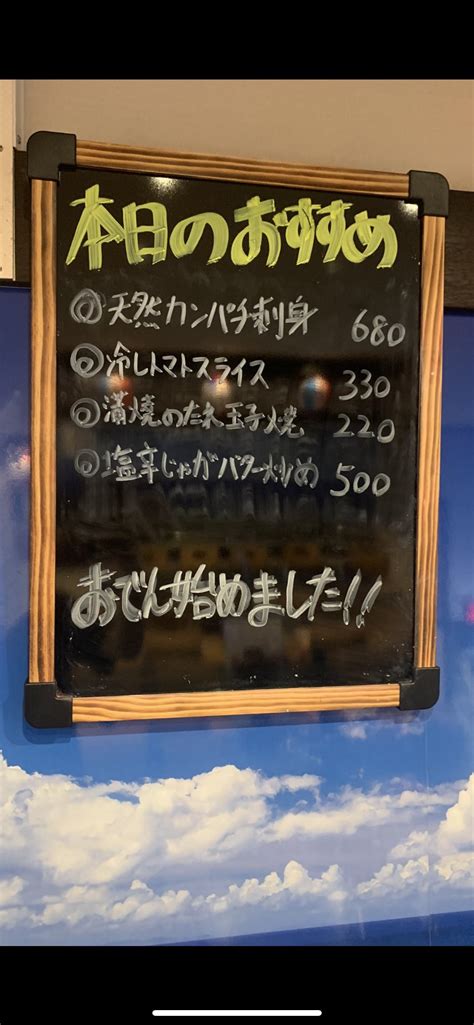 本日のおすすめ
◎天然カンパチ刺身 680
◎冷しトマトスライス 330
◎蒲焼のたれ玉子焼 220
◎塩辛じゃがバター炒め 500
おでん始めました!!